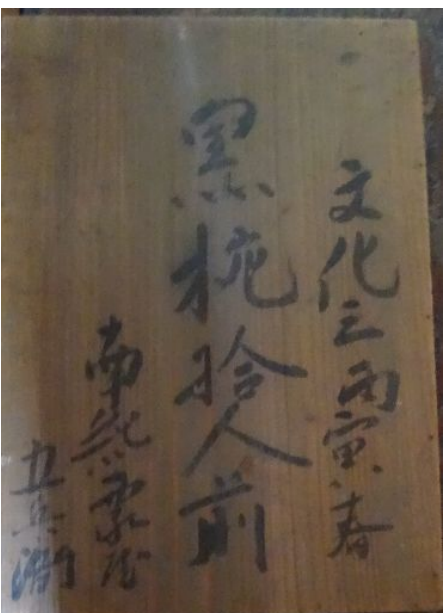 文化三丙寅春
黒椀拾人前
南
五兵衛